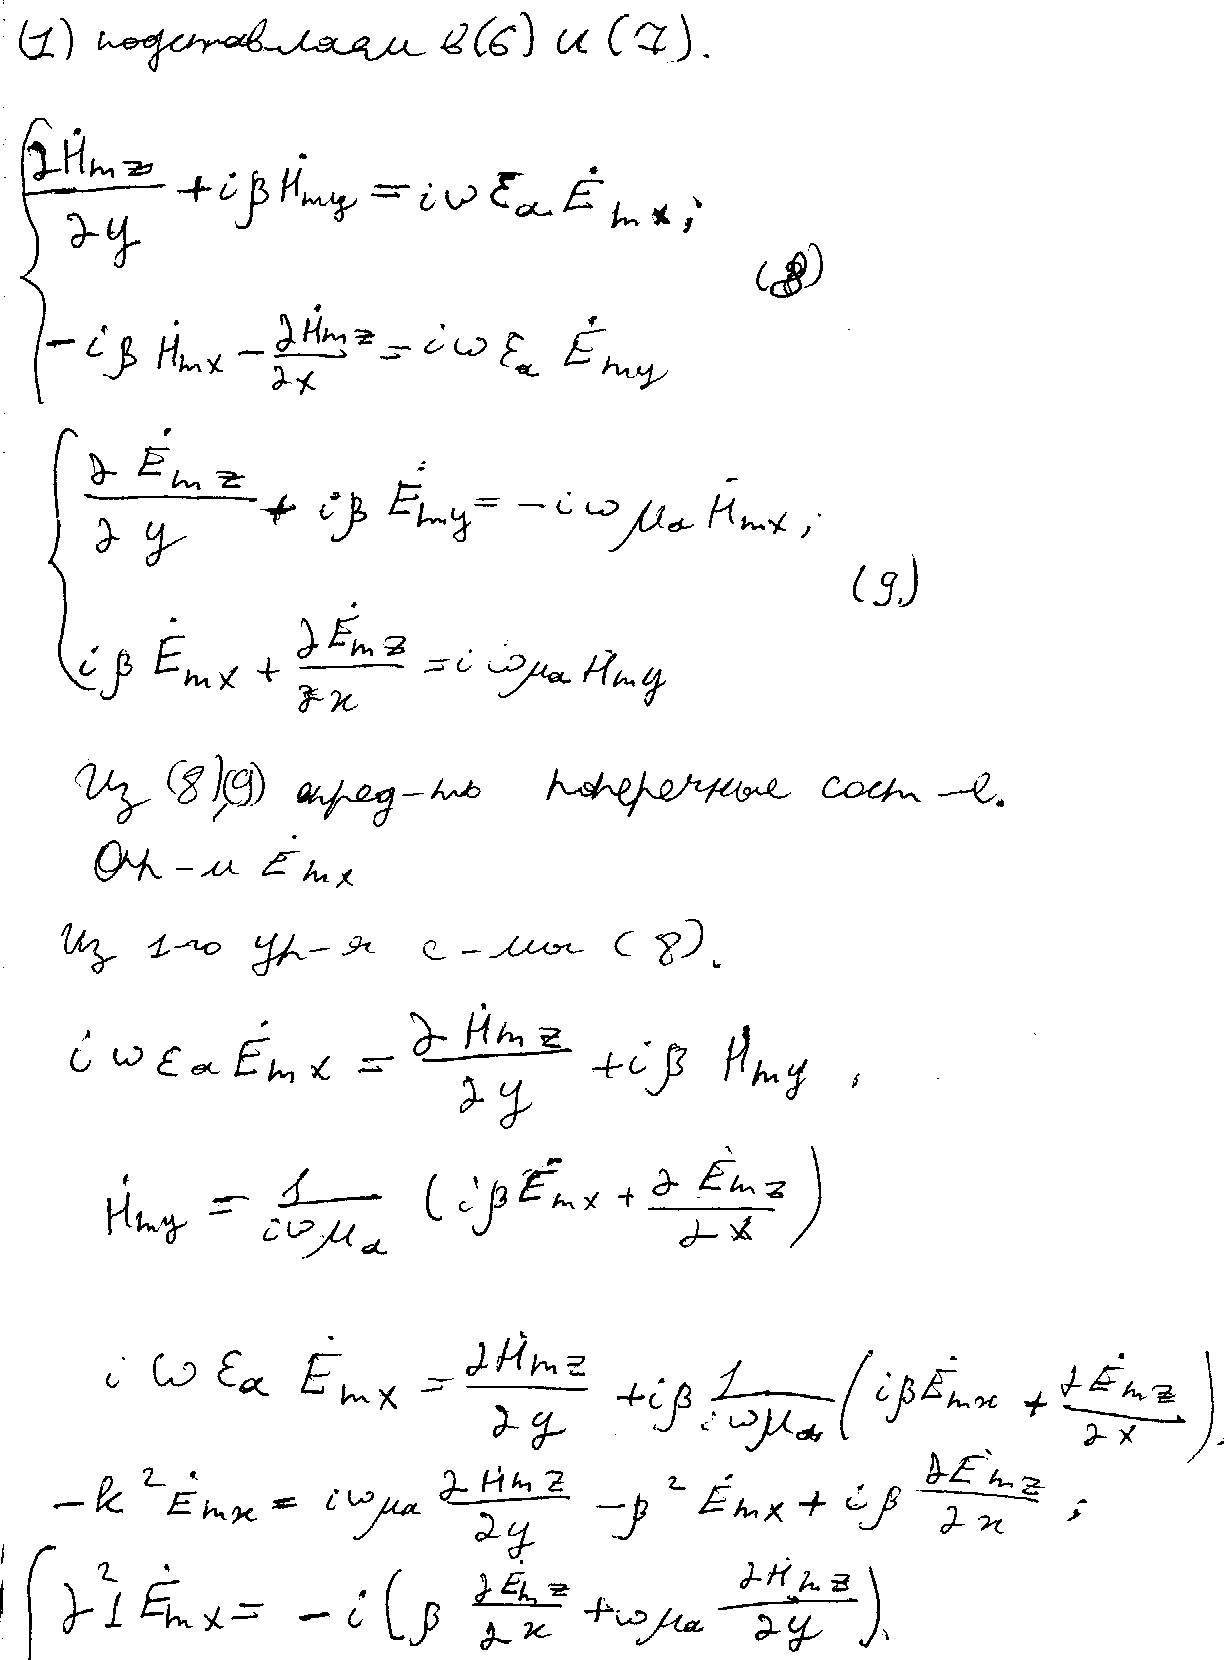 (1) подставляем в (6) и (7).
∂Ḣmz/∂y + iβḢmy = iωεaĖmx;
(8)
-iβḢmx - ∂Ḣmz/∂x = iωεaĖmy
∂Ėmz/∂y + iβĖmy = -iωμaḢmx;
(9)
iβĖmx + ∂Ėmz/∂x = iωμaḢmy
Из (8),(9) опред-ть поперечные сост-е.
Оп-м Ėmx
Из 1-го ур-я с-мы (8).
iωεaĖmx = ∂Ḣmz/∂y + iβḢmy,
Ḣmy = 1/(iωμa) (iβĖmx + ∂Ėmz/∂x)
iωεaĖmx = ∂Ḣmz/∂y + iβ 1/(iωμa) (iβĖmx + ∂Ėmz/∂x).
-k²Ėmx = iωμa ∂Ḣmz/∂y - β²Ėmx + iβ ∂Ėmz/∂x;
γ²⊥Ėmx = -i(β ∂Ėmz/∂x + ωμa ∂Ḣmz/∂y).